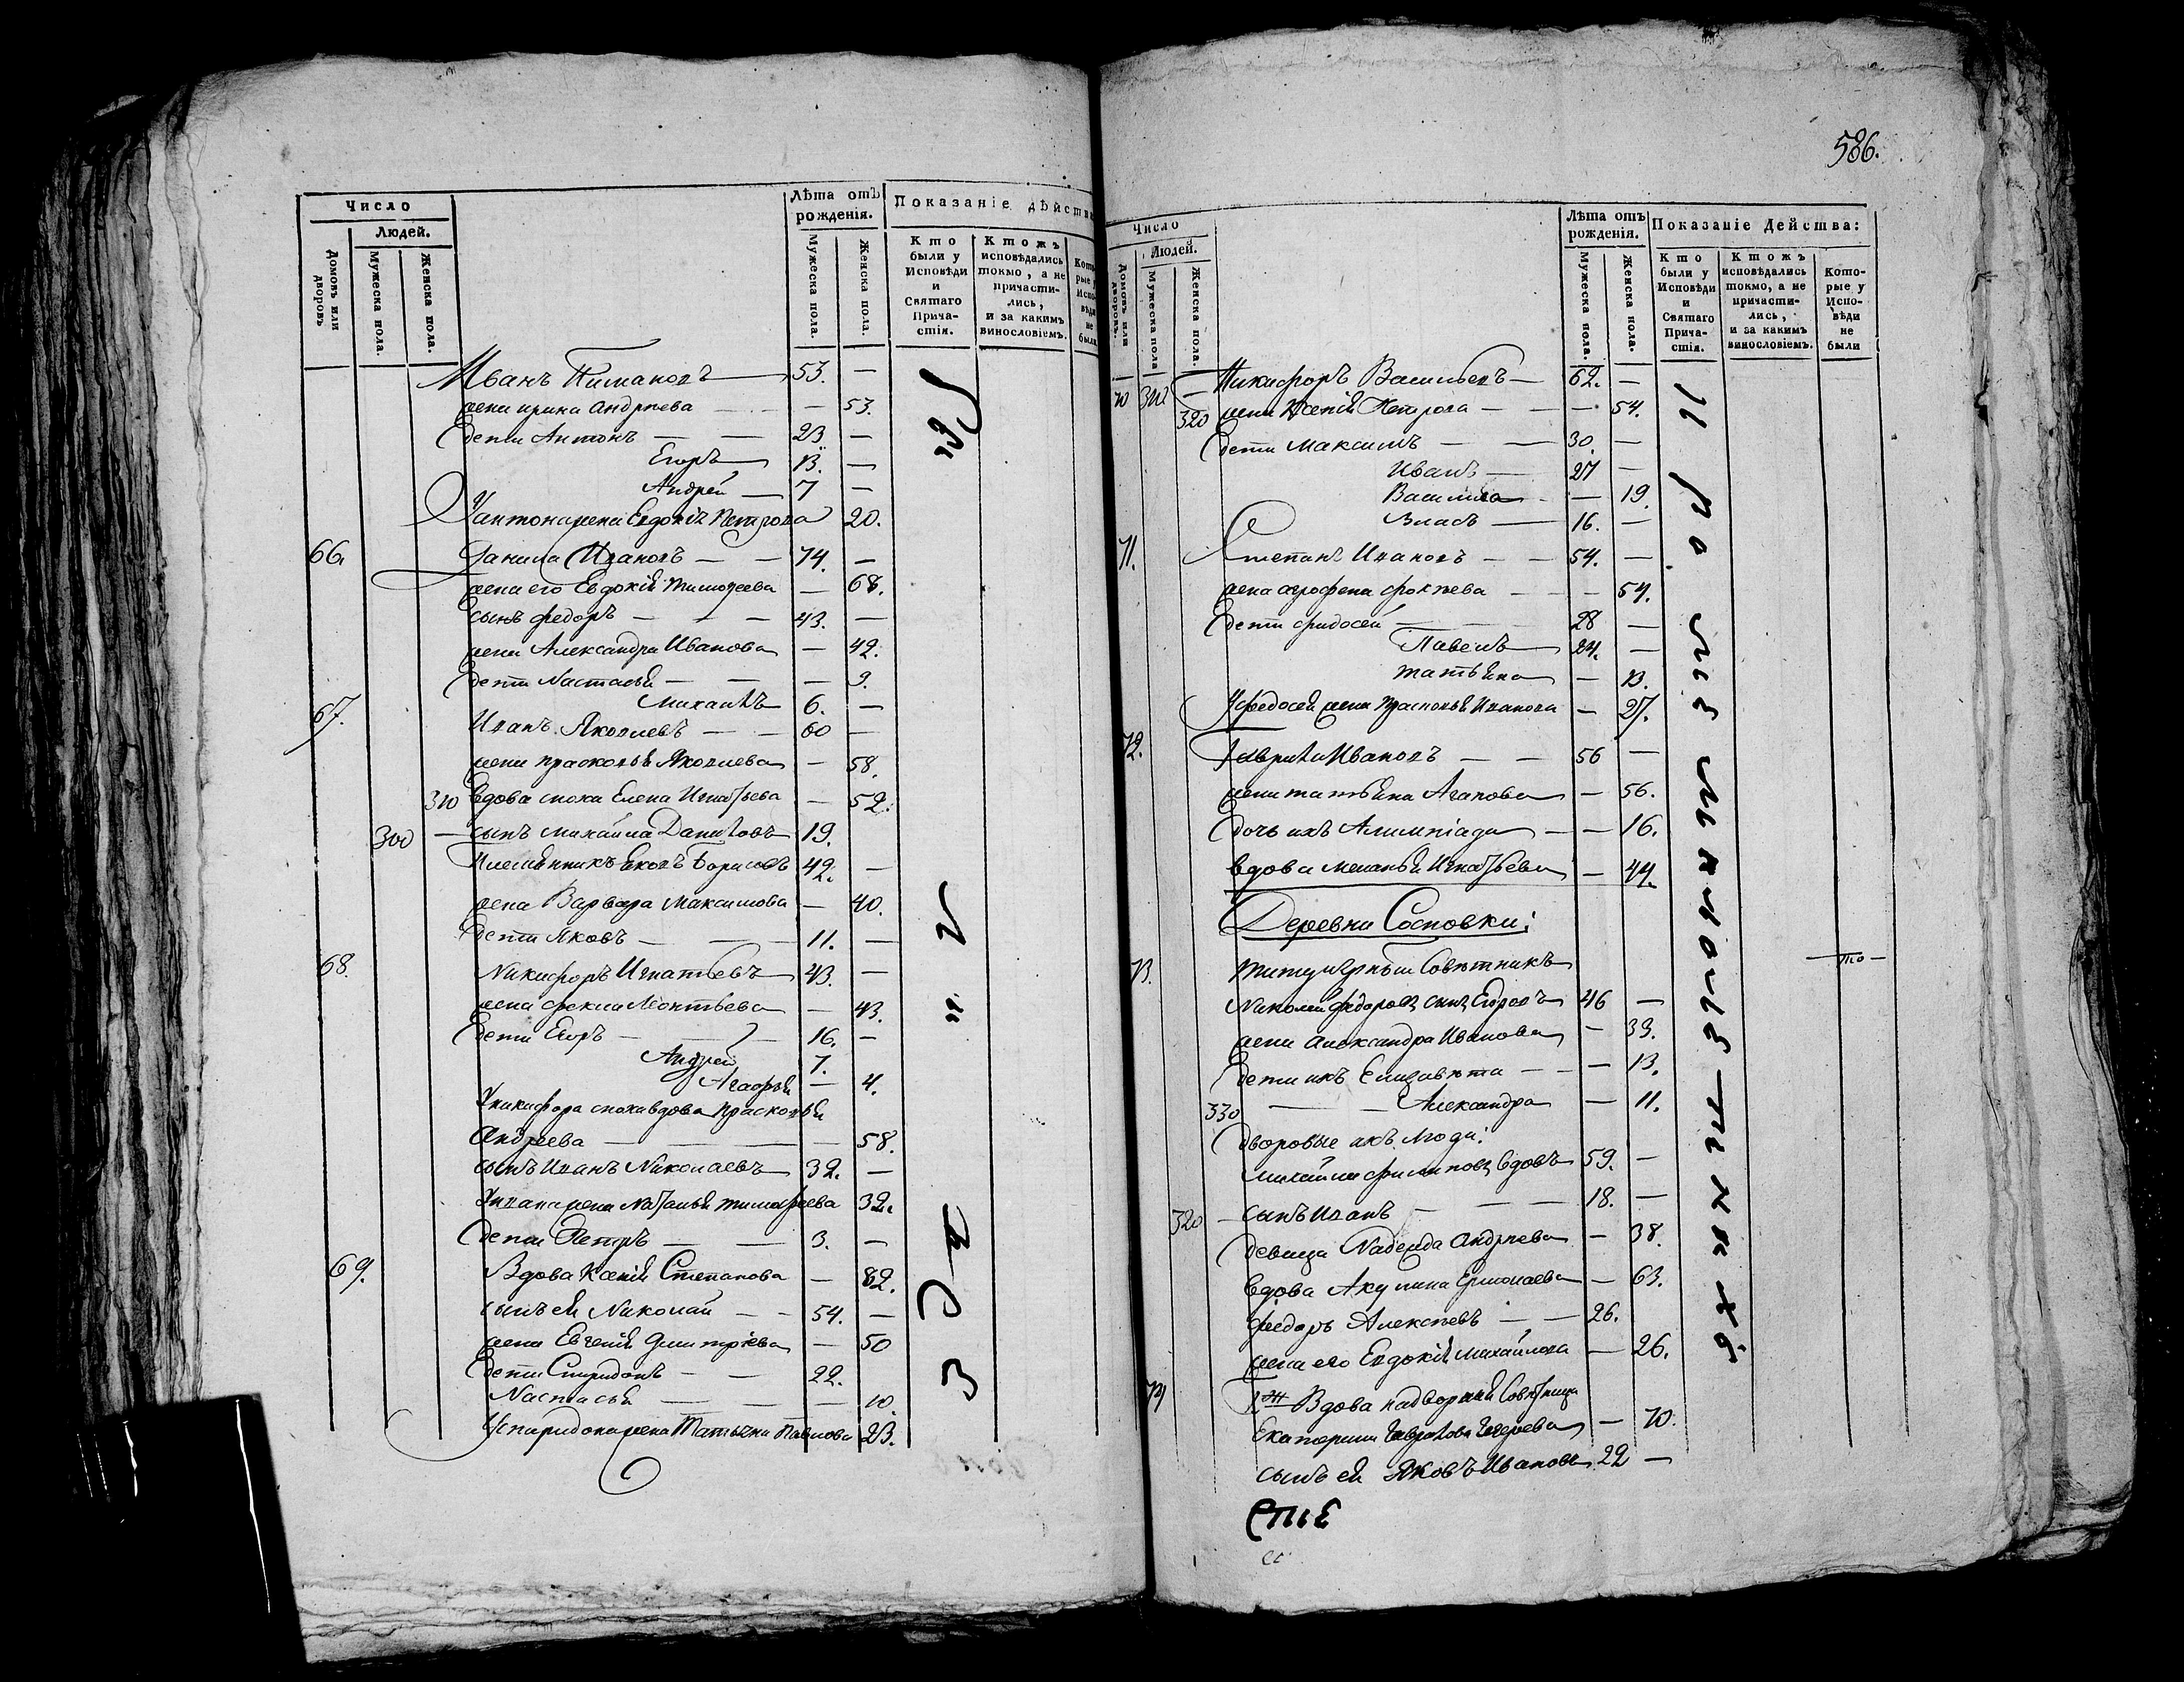 586.
Число
Людей.
Домовъ или дворовъ
Мужеска пола.
Женска пола.
Лѣта отъ рожденія.
Мужеска пола.
Женска пола.
Показаніе дѣйства
Кто были у Исповѣди и Святаго Причастія.
Ктожъ исповѣдались токмо, а не причастились, и за какимъ винословіемъ.
Которые у Исповѣди не были
Иванъ 53. —
жена ирина Андрѣева — — 53.
дети Антонъ — — 23. —
Егоръ — 13. —
Андрей — 7 —
У антона жена Евдокія Петрова 20.
66. Данила Ивановъ — — 74. —
жена его Евдокія Тимоѳеева — 68.
сынъ федоръ — — 43. —
жена Александра Иванова — 42.
дети Настасья — — — 9.
Михаилъ 6. —
67. Иванъ Яковлевъ — — 60 —
жена прасковья Яковлева — 58.
310 вдова сноха Елена Игнатьева — 52.
300 — сынъ михайла Даниловъ 19.
Племянникъ Борисовъ 42. —
жена Варвара Максимова — 40.
дети Яковъ — — 11. —
68. Никифоръ Игнатьевъ 43. —
жена фекла Леонтьева — 43.
дети Егоръ — — 16. —
Андрей 7.
Агафья — 4.
У никифора сноха вдова прасковья
Андреева — — — 58.
сынъ Иванъ Николаевъ 32. —
У ивана жена Наталья тимофеева 32.
дети Петръ — — 3. —
69. Вдова Ксенія Степанова — 82.
сынъ ея Николай — — 54. —
жена Евгенія Дмитріева — 50
дети Спиридонъ — — 22.
Настасья — — — 10.
У спиридона жена Татьяна Павлова 23.
Число
Людей.
Домовъ или дворовъ.
Мужеска пола
Женска пола.
Лѣта отъ рожденія.
Мужеска пола.
Женска пола.
Показаніе Действа:
Кто были у Исповѣди и Святаго Причастія.
Ктожъ исповѣдались токмо, а не причастились, и за какимъ винословіемъ.
Которые у Исповѣди не были
70 310 — Никифоръ Васильевъ — 62. —
320 жена Ксенія Петрова — — — 54.
дети Максимъ — — 30. —
Иванъ — 27 —
Василиса — — 19.
Власъ — 16. —
71. Степанъ Ивановъ — — 54. —
жена агрофена фокѣева — — — 54.
дети фидосей — 28 —
Павелъ 24. —
татьяна — 13.
У федосея жена Прасковья Иванова — 27.
72. Гаврила Ивановъ — — 56 —
жена татьяна Агапова — 56.
дочь ихъ Алимпіада — — 16.
вдова меланья Игнатьева — 44.
Деревни Сосновки:
73. титулярный Совѣтникъ
Николай федоровъ сынъ 46 —
жена александра Иванова — 39.
дети ихъ Елизавѣта — — — 13.
330 — — Александра — 11.
дворовые ихъ люди:
михайла филиповъ вдовъ 59. —
320 — сынъ Иванъ — — — 18. —
девица Надежда Андрѣева — 38.
вдова Акулина Ермолаева — 63.
федоръ Алексѣевъ — — 26.
жена его Евдокія михайлова — 26.
74 Вдова надворная Совѣтница
Екатерина Гаврилова — 70.
сынъ ея Яковъ Ивановъ 22 —